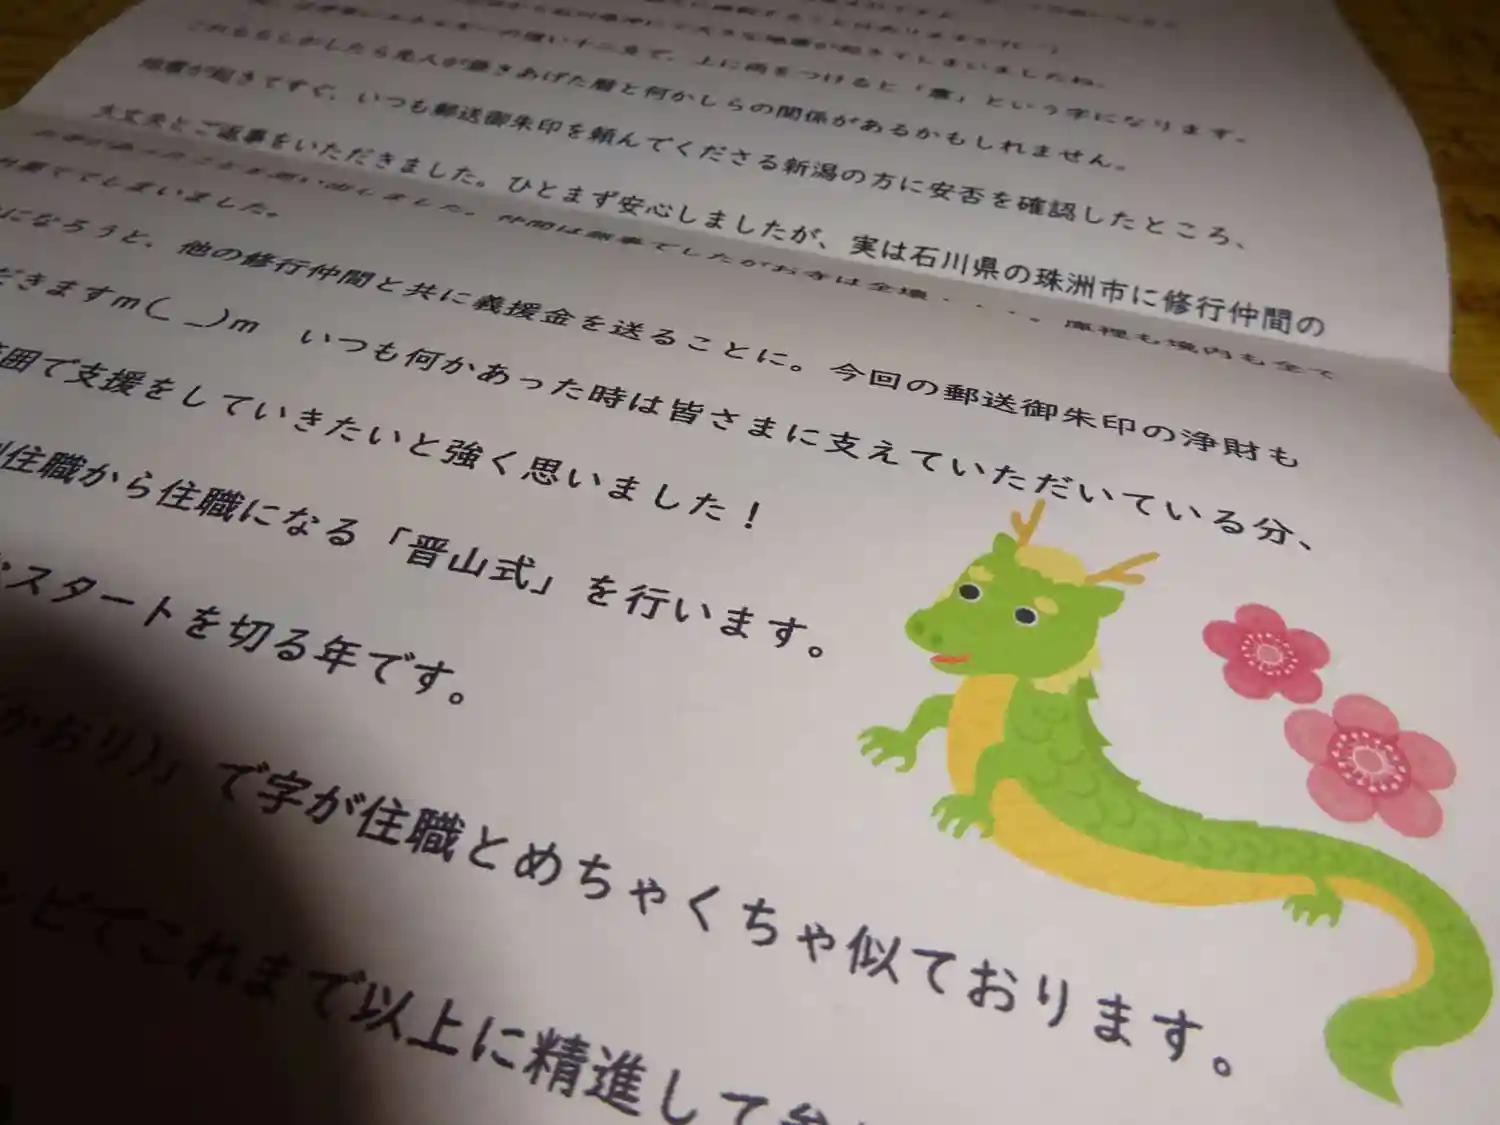 大きな地震が起きてしまいましたね。
エネルギーの強い十二支で、上に雨をつけると「震」という字になります。
これももしかしたら先人が築きあげた暦と何かしらの関係があるかもしれません。
地震が起きてすぐ、いつも郵送御朱印を頼んでくださる新潟の方に安否を確認したところ、
大丈夫とご返事をいただきました。ひとまず安心しましたが、実は石川県の珠洲市に修行仲間の
お寺があったことを思い出しました。仲間は無事でしたがお寺は全壊・・・。庫裡も境内も全て
ててしまいました。
になろうと、他の修行仲間と共に義援金を送ることに。今回の郵送御朱印の浄財も
だきますm(_ _)m いつも何かあった時は皆さまに支えていただいている分、
範囲で支援をしていきたいと強く思いました！
住職から住職になる「晋山式」を行います。
スタートを切る年です。
かおり）」で字が住職とめちゃくちゃ似ております。
ビでこれまで以上に精進して